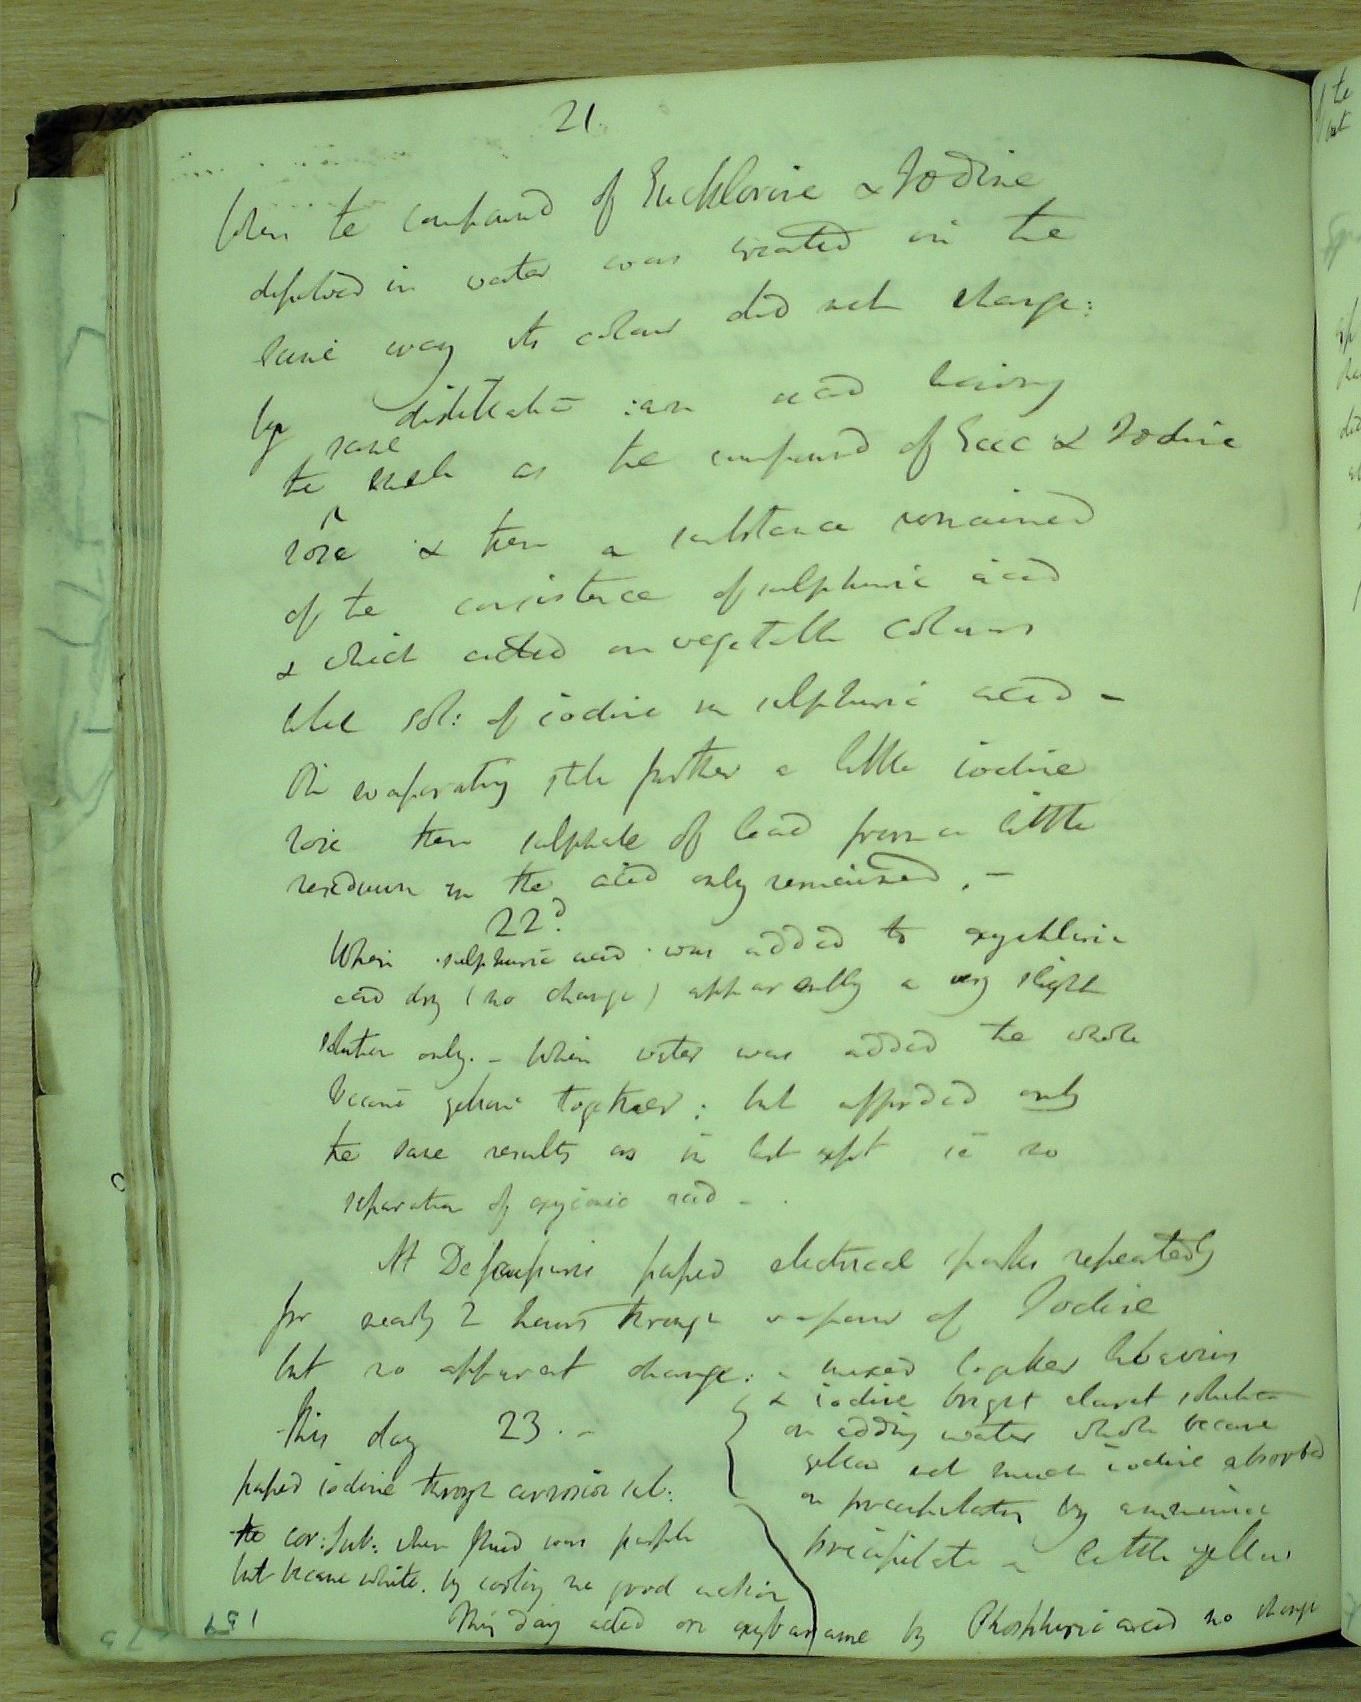 21
When te compound of Euchlorine & Iodine
dissolved in water was treated in the
same way its colour did not change:
by distillation :an acid having
same
the smell as the compound of Euc & Iodine
rose & then a substance remained
of te consistence of sulphuric acid
& which acted on vegetable colours
like sol: of iodine in sulphuric acid -
On evaporating still further a little iodine
rose then sulphate of lead from a little
residuum in the acid only remained. -
22d.
When sulphuric acid was added to oxychloric
acid dry (no change) apparently a very slight
solution only. - When water was added the whole
became yellow together : but afforded only
the same results as in last expt ie no
separation of oxyiodic acid -
passed electrical sparks repeatedly
for nearly 2 hours through vapour of Iodine
but no apparent change:
mixed together
& iodine bright claret solution
on adding water whole became
yellow not much iodine absorbed
on precipitating by ammonia
precipitate a little yellow
this day 23. -
passed iodine through corrosive sub:
the cor: sub: when fluid was purple
but became white. by cooling no good action
This day acted on by Phosphoric acid no change
151